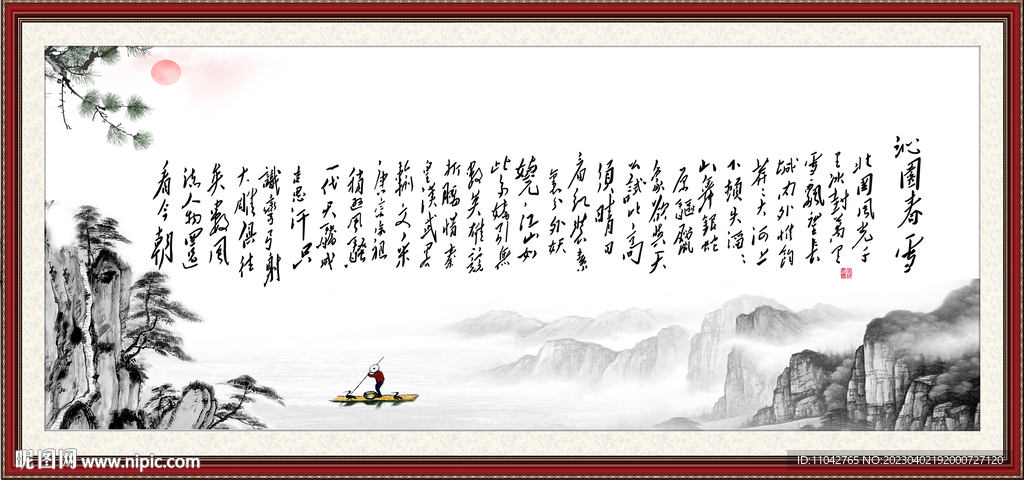 沁園春雪
北国风光千
里冰封萬里
雪飘望长
城内外惟余
莽莽大河上
下顿失滔滔
山舞银蛇
原驱腊
象欲与天
公试比高
须晴日
看红装素
裹分外妖
娆江山如
此多娇引无
数英雄竞
折腰惜秦
皇汉武略
输文采
唐宗宋祖
稍逊风骚
一代天骄成
吉思汗只
識弯弓射
大雕俱往
矣数风
流人物還
看今朝
昵图网 www.nipic.com
ID:11042765 NO:20230402192000727120